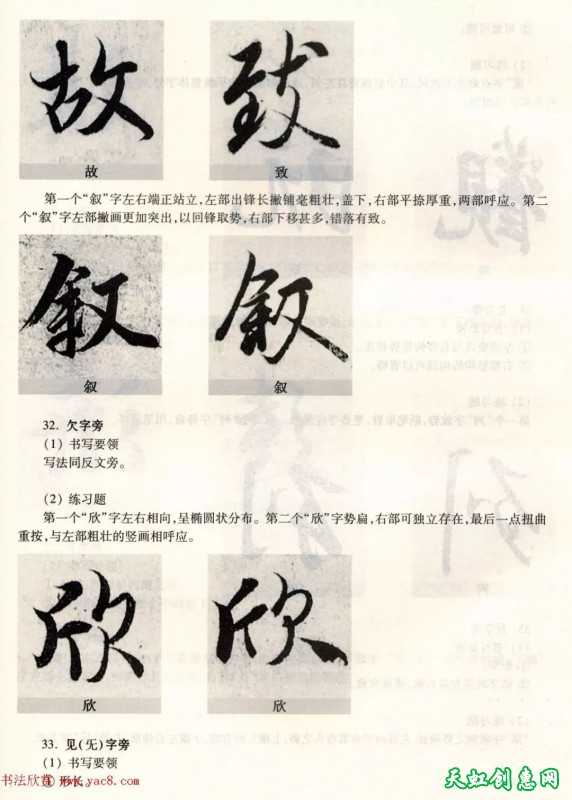 故 致
故 致
第一个“叙”字左右端正站立,左部出锋长撇铺毫粗壮,盖下,右部平捺厚重,两部呼应。第二
个“叙”字左部撇画更加突出,以回锋取势,右部下移甚多,错落有致。
叙 叙
叙 叙
32. 欠字旁
(1) 书写要领
写法同反文旁。
(2) 练习题
第一个“欣”字左右相向,呈椭圆状分布。第二个“欣”字势扁,右部可独立存在,最后一点扭曲
重按,与左部粗壮的竖画相呼应。
欣 欣
欣 欣
33. 见(旡)字旁
(1) 书写要领
① 形长。
书法欣赏 www.yac8.com
天虹创意网